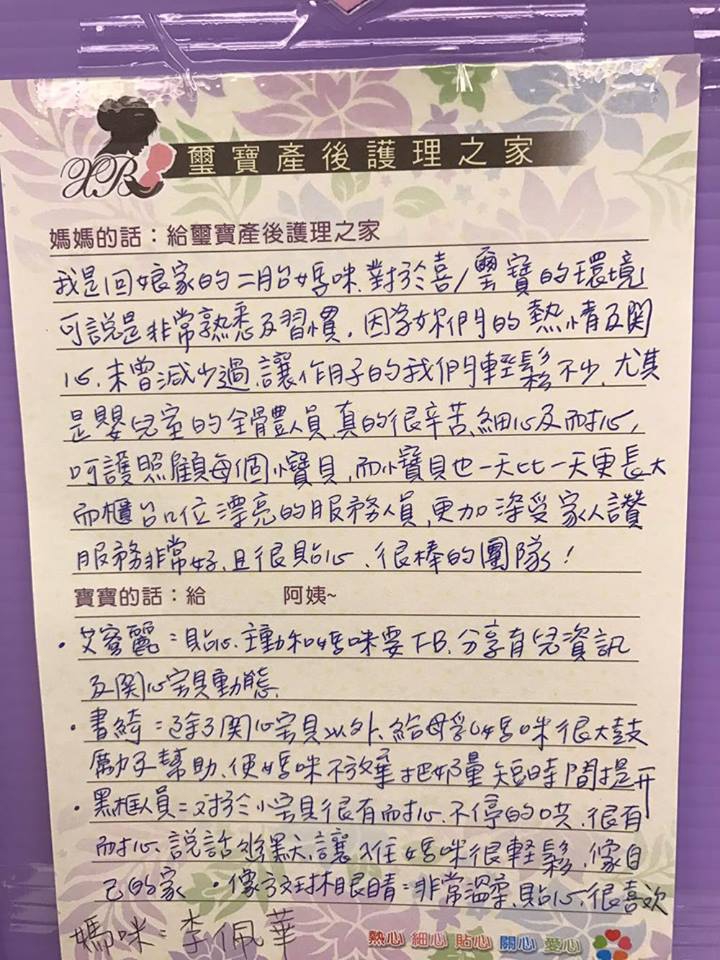 XB 璽寶產後護理之家
媽媽的話：給璽寶產後護理之家
我是回娘家的二胎媽咪.對於喜/璽寶的環境
可說是非常熟悉及習慣，因為妳們的熱情及関
心.未曾減少過.讓作月子的我們輕鬆不少.尤其
是嬰兒室的全體人員.真的很辛苦.細心及耐心,
呵護照顧每個小寶貝,而小寶貝也一天比一天更長大
而櫃台口位漂亮的服務人員,更加深受家人讚
服務非常好.且很貼心.很棒的團隊!
寶寶的話：給 阿姨~
•艾蜜麗=貼心.主動和媽咪要FB.分享育兒資訊
及関心宝貝動態.
•書綺=除了関心宝貝以外.給母乳媽咪很大鼓
勵予幫助.使媽咪不放棄把奶量短時間提升
•黑框人員=对於小宝貝很有耐心.不停的哄.很有
耐心.說話幽默.讓入住媽咪很輕鬆.像自
己的家 •像 眼睛=非常溫柔.貼心.很喜欢
媽咪:李佩華
熱心 細心 貼心 關心 愛心